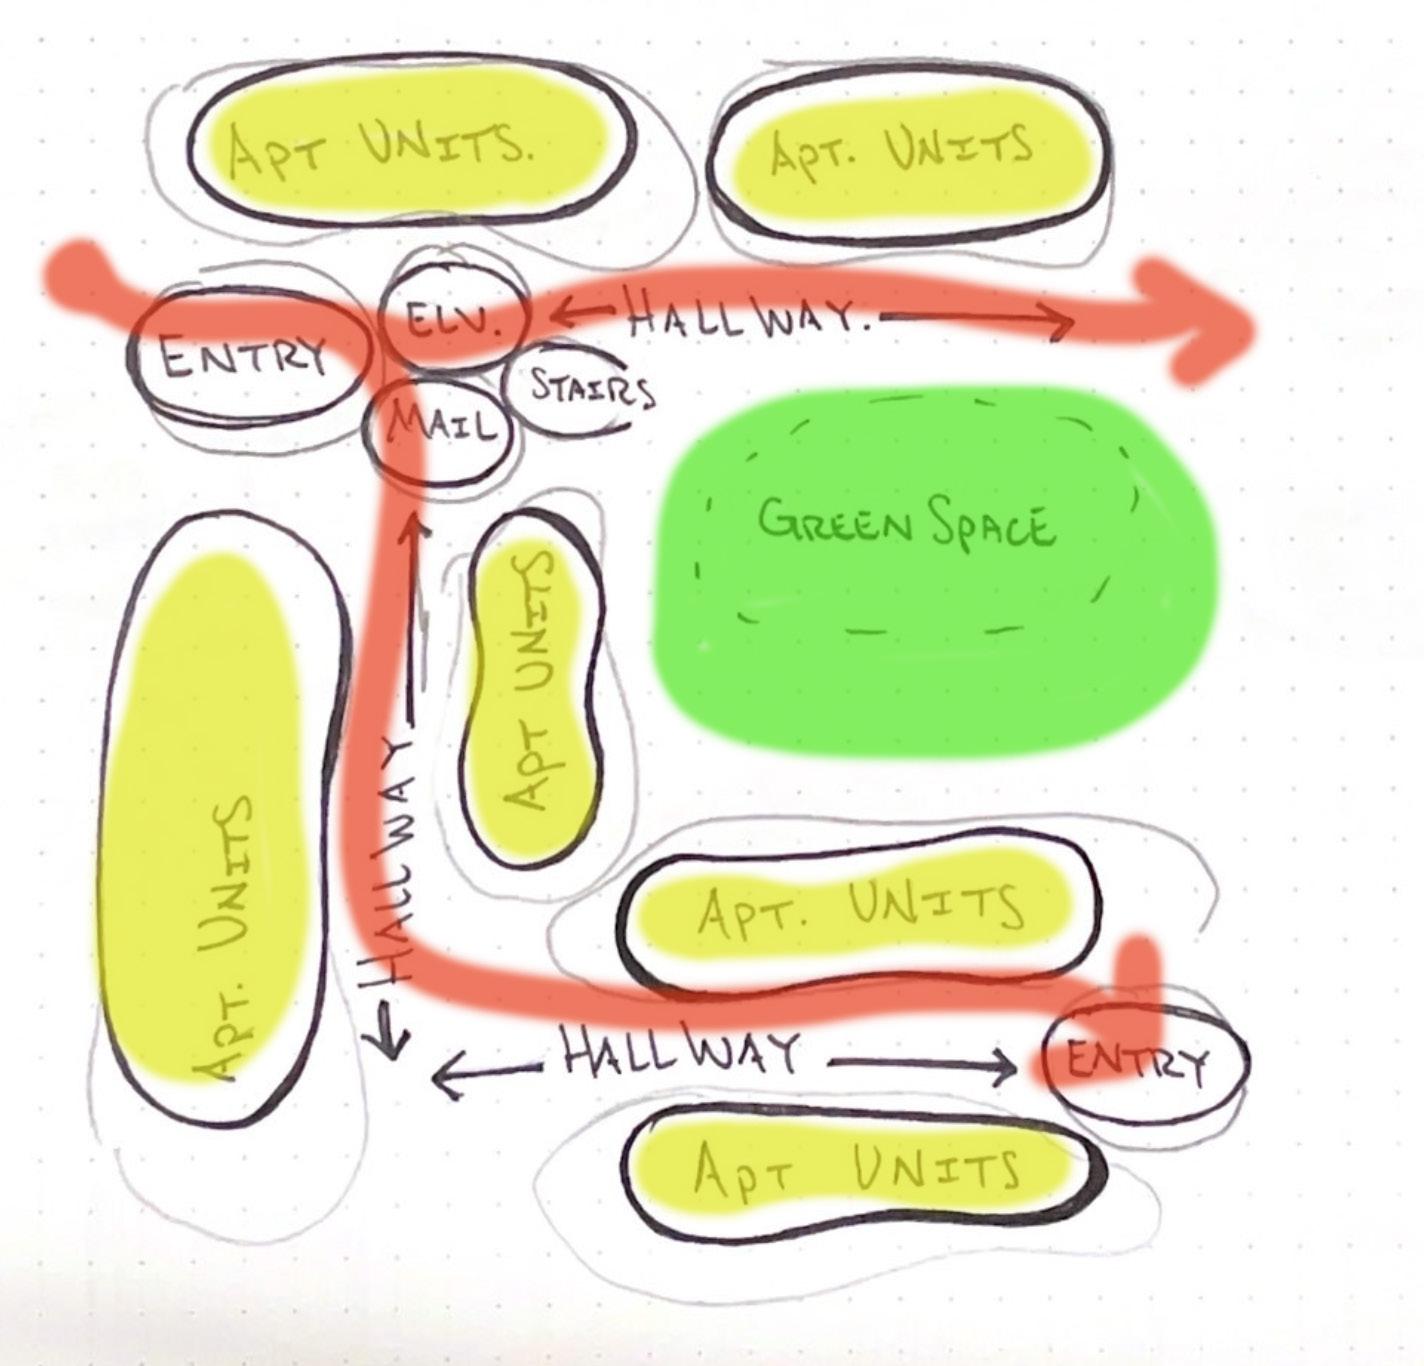 APT UNITS.
APT. UNITS
ENTRY
ELV.
HALLWAY.
STAIRS
MAIL
GREEN SPACE
APT. UNITS
HALLWAY
APT UNITS
APT. UNITS
HALLWAY
ENTRY
APT UNITS